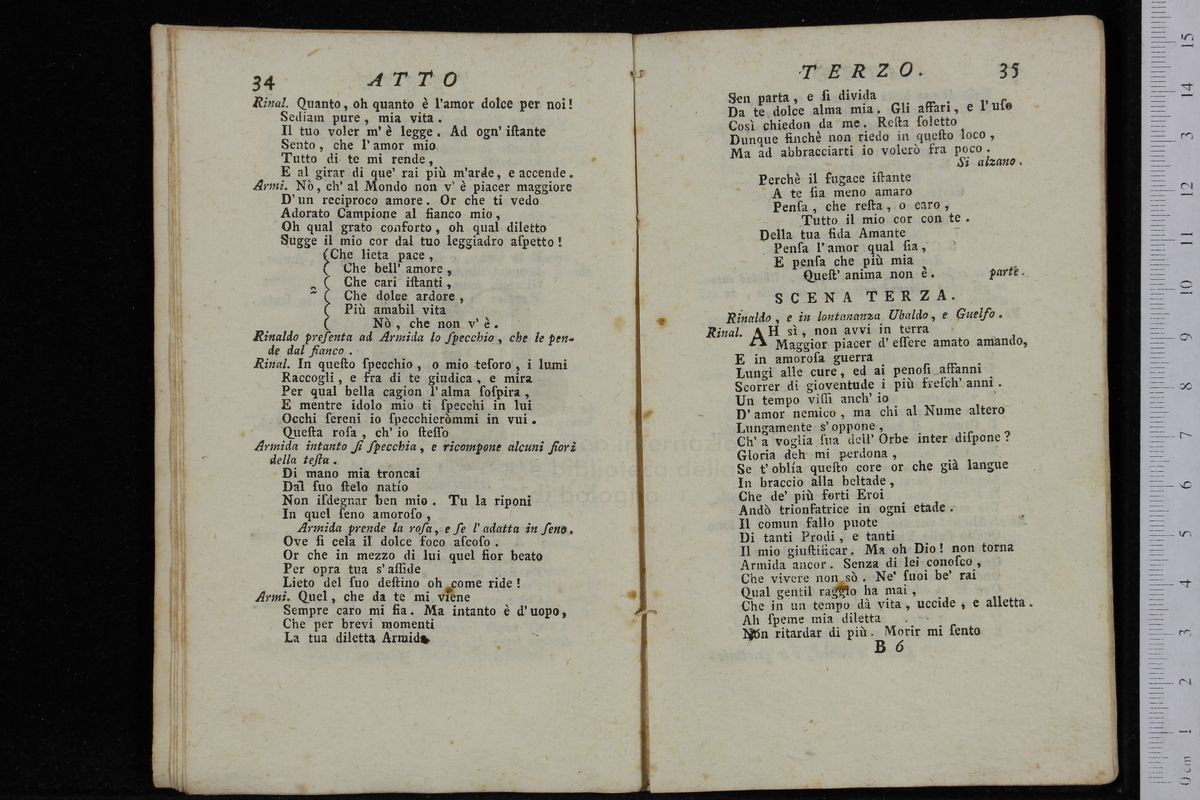 34 ATTO
Rinal. Quanto, oh quanto è l'amor dolce per noi!
Sediam pure, mia vita.
Il tuo voler m'è legge. Ad ogn' iſtante
Sento, che l'amor mio
Tutto di te mi rende,
E al girar di que' rai più m'arde, e accende.
Armi. Nò, ch' al Mondo non v' è piacer maggiore
D'un reciproco amore. Or che ti vedo
Adorato Campione al fianco mio,
Oh qual grato conforto, oh qual diletto
Sugge il mio cor dal tuo leggiadro aſpetto!
(Che lieta pace,
( Che bell' amore,
( Che cari iſtanti,
2 ( Che dolce ardore,
( Più amabil vita
( Nò, che non v' è.
Rinaldo preſenta ad Armida lo ſpecchio, che le pen-
de dal fianco.
Rinal. In queſto ſpecchio, o mio teſoro, i lumi
Raccogli, e fra di te giudica, e mira
Per qual bella cagion l'alma ſoſpira,
E mentre idolo mio ti ſpecchi in lui
Occhi ſereni io ſpecchieròmmi in vui.
Queſta roſa, ch' io ſteſſo
Armida intanto ſi ſpecchia, e ricompone alcuni fiori
della teſta.
Di mano mia troncai
Dal ſuo ſtelo natío
Non iſdegnar ben mio. Tu la riponi
In quel ſeno amoroſo,
Armida prende la roſa, e ſe l'adatta in ſeno.
Ove ſi cela il dolce foco aſcoſo.
Or che in mezzo di lui quel fior beato
Per opra tua s'aſſide
Lieto del ſuo deſtino oh come ride!
Armi. Quel, che da te mi viene
Sempre caro mi fia. Ma intanto è d'uopo,
Che per brevi momenti
La tua diletta Armida
TERZO. 35
Sen parta, e ſi divida
Da te dolce alma mia. Gli affari, e l'uſo
Così chiedon da me. Reſta ſoletto
Dunque finchè non riedo in queſto loco,
Ma ad abbracciarti io volerò fra poco.
Si alzano.
Perchè il fugace iſtante
A te ſia meno amaro
Penſa, che reſta, o caro,
Tutto il mio cor con te.
Della tua fida Amante
Penſa l'amor qual ſia,
E penſa che più mia
Queſt' anima non è. parte.
SCENA TERZA.
Rinaldo, e in lontananza Ubaldo, e Guelfo.
Rinal. AH sì, non avvi in terra
Maggior piacer d'eſſere amato amando,
E in amoroſa guerra
Lungi alle cure, ed ai penoſi affanni
Scorrer di gioventude i più freſch' anni.
Un tempo viſſi anch' io
D'amor nemico, ma chi al Nume altero
Lungamente s'oppone,
Ch' a voglia ſua dell' Orbe inter diſpone?
Gloria deh mi perdona,
Se t'oblía queſto core or che già langue
In braccio alla beltade,
Che de' più forti Eroi
Andò trionfatrice in ogni etade.
Il comun fallo puote
Di tanti Prodi, e tanti
Il mio giuſtificar. Ma oh Dio! non torna
Armida ancor. Senza di lei conoſco,
Che vivere non sò. Ne' ſuoi be' rai
Qual gentil raggio ha mai,
Che in un tempo dà vita, uccide, e alletta.
Ah ſpeme mia diletta
Non ritardar di più. Morir mi ſento
B 6